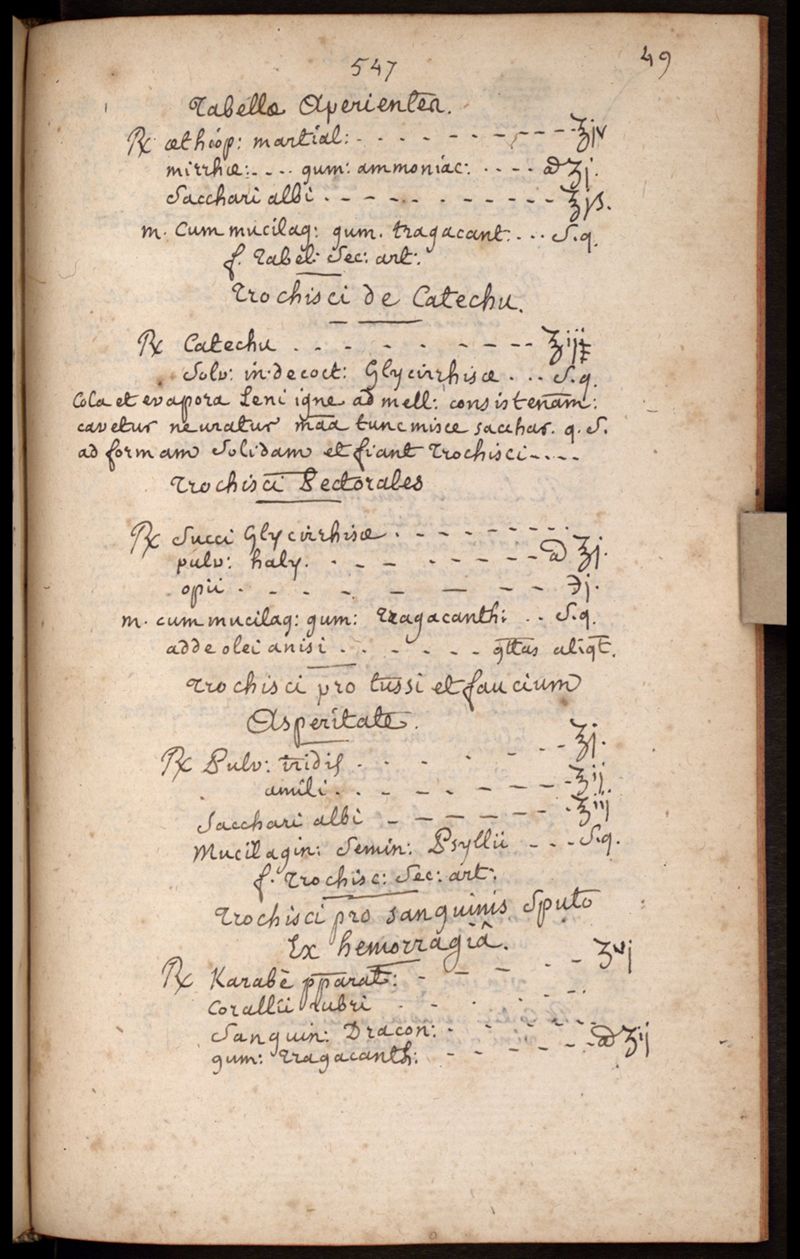 547
49
Tabellæ Aperientēs.
℞ æthiop: martial: - - - - - - - - - ʒiv
mirrhæ: - - - gum: ammoniac: - - - - a͞a ʒj.
Sacchari albi - - - - - - - - - - - ℥jß.
m. Cum mucilag: gum. tragacant: - - - S.q.
f. Tabel: Sec: art:
Trochisci de Catechu.
℞ Catechu - - - - - - - - - ℥iij
Solv: in decoct: Glycirrhisæ - - - S.q.
Cola et evapora Leni igne ad mell: consistenām:
cavetur ne uratur māa tunc misce sacchar. q.S.
ad formam Solidam et fiant Trochisci - - - -
Trochisci Pectorales
℞ Succi Glycirrhisæ - - - - - - - -
pulv: haly. - - - - - - - - a͞a ℥j.
opii - - - - - - - - - ℈j.
m. cum mucilag: gum: Tragacanth: - - S.q.
adde olei anisi - - - - - - - gttas aliqt.
Trochisci pro tussi et faucium
Asperitate.
℞ Pulv: iridis - - - - - - - ℥j.
amili - - - - - - - - ℥ij.
Sacchari albi - - - - - - - ℥iij
Mucilagin: Semin: Psyllii - - - S.q.
f. Trochisc: Sec: art:
Trochisci pro sanguinis Sputo
Ex hemorragiâ.
℞ Karabè pparat: - - - - - ʒvj
Corallii rubri - - - - -
Sanquin: Dracon: - - - - - -
gum: Tragacanth: - - - - - - a͞a ʒij